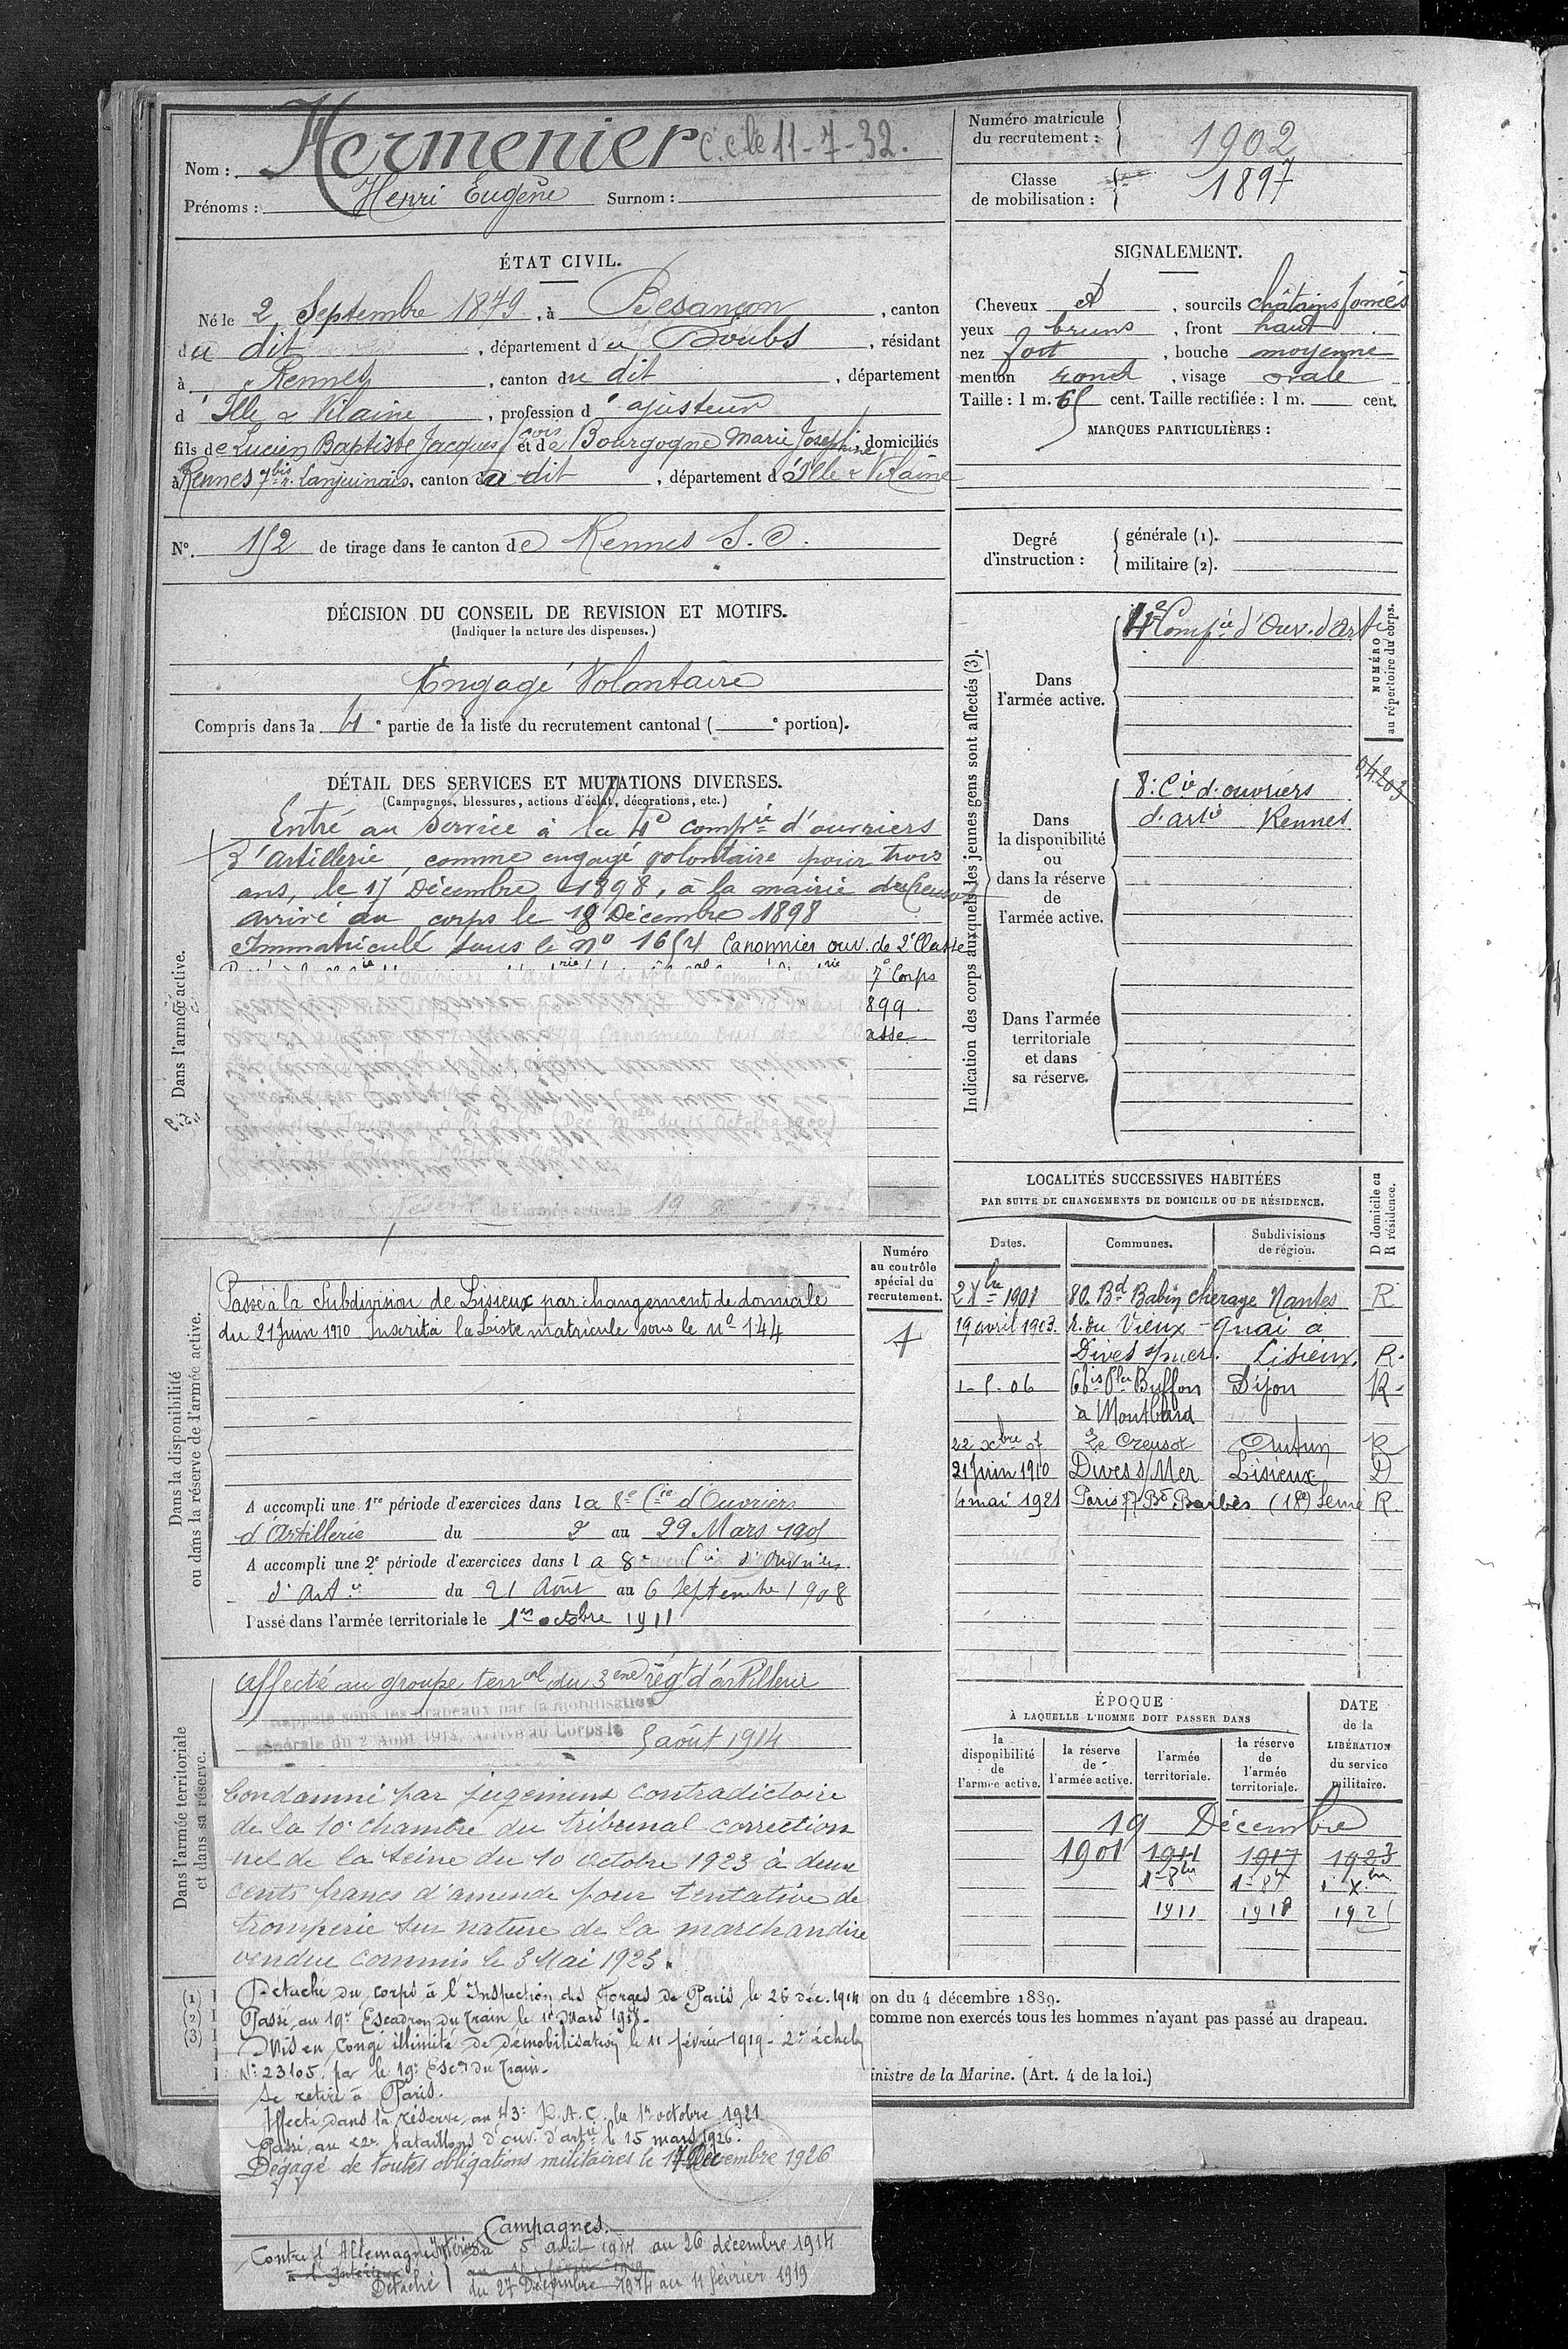 Nom : Hermenier C.C le 11-7-32.
Prénoms : Henri Eugène Surnom :
Numéro matricule du recrutement : 1902
Classe de mobilisation : 1897
ÉTAT CIVIL.
Né le 2 Septembre 1879, à Besançon, canton
du dit, département du Doubs, résidant
à Rennes, canton du dit, département
d'Ille & Vilaine, profession d'ajusteur
fils de Lucien Baptiste Jacques fçois et de Bourgogne Marie Joséphine, domiciliés
à Rennes 7bis r. Lanjuinais, canton du dit, département d'Ille & Vilaine
N° 152 de tirage dans le canton de Rennes S.O.
SIGNALEMENT.
Cheveux et, sourcils châtains foncés
yeux bruns, front haut
nez fort, bouche moyenne
menton rond, visage ovale
Taille : 1 m. 65 cent. Taille rectifiée : 1 m. cent.
MARQUES PARTICULIÈRES :
Degré d'instruction : générale (1).
militaire (2).
DÉCISION DU CONSEIL DE REVISION ET MOTIFS.
(Indiquer la nature des dispenses.)
Engagé Volontaire
Compris dans la 4e partie de la liste du recrutement cantonal ( e portion).
DÉTAIL DES SERVICES ET MUTATIONS DIVERSES.
(Campagnes, blessures, actions d'éclat, décorations, etc.)
Dans l'armée active.
Entré au Service à la 4e compie d'ouvriers
d'artillerie, comme engagé volontaire pour trois
ans, le 17 Décembre 1898, à la mairie du Creusot
arrivé au corps le 18 Décembre 1898
Immatriculé sous le no 1654 Canonnier ouv. de 2e Classe
7e Corps
899
asse
Indication des corps auxquels les jeunes gens sont affectés (3).
NUMÉRO au répertoire du corps.
Dans l'armée active.
4e Compie d'Ouv. d'Artie
Dans la disponibilité ou dans la réserve de l'armée active.
8e Cie d'ouvriers
d'artie Rennes
Dans l'armée territoriale et dans sa réserve.
Dans la disponibilité ou dans la réserve de l'armée active.
Numéro au contrôle spécial du recrutement.
Passé à la Subdivision de Lisieux par changement de domicile
du 21 Juin 1910 Inscrit à la Liste matricule sous le No 144
A accompli une 1re période d'exercices dans la 8e Cie d'Ouvriers
d'Artillerie du 2 au 29 Mars 1905
A accompli une 2e période d'exercices dans la 8e Cie d'Ouvriers
d'Artie du 21 Août au 6 Septembre 1908
Passé dans l'armée territoriale le 1er octobre 1911
LOCALITÉS SUCCESSIVES HABITÉES
PAR SUITE DE CHANGEMENTS DE DOMICILE OU DE RÉSIDENCE.
Dates. Communes. Subdivisions de région. D domicile ou R résidence.
2 Xbre 1901 80 Bd Babin Cheraye Nantes R
19 avril 1903. r. du Vieux-Quai à
Dives s/mer. Lisieux. R.
1-5-06 6bis Buffon Dijon R-
à Montbard
22 xbre 07 Le Creusot Autun R
21 Juin 1910 Dives s/Mer Lisieux D
4 mai 1921 Paris 77 Bd Barbès (18e) Seine R
Dans l'armée territoriale et dans sa réserve.
Affecté au groupe terral du 3eme régt d'artillerie
Rappelé sous les drapeaux par la mobilisation
générale du 2 Août 1914. Arrivé au Corps le 5 août 1914
Condamné par jugement contradictoire
de la 10e chambre du tribunal correction
nel de la Seine du 10 octobre 1923 à deux
cents francs d'amende pour tentative de
tromperie sur nature de la marchandise
vendue commis le 3 Mai 1923.
Détaché du corps à l'Inspection des Forges de Paris le 26 déc. 1914
Passé au 19e Escadron du Train le 1er Mars 1918.
Mis en congé illimité de démobilisation le 11 février 1919 - 2e échelon
No 23105, par le 19e Escon du Train.
Se retire à Paris.
Affecté dans la réserve au 43e R.A.C. le 1er octobre 1921
Passé au 22e bataillons d'ouv. d'artie le 15 mars 1926.
Dégagé de toutes obligations militaires le 17 Décembre 1926
Campagnes.
Contre l'Allemagne Intérieur du 5 août 1914 au 26 décembre 1914
à l'Intérieur au 11 février 1919
Détaché du 27 Décembre 1914 au 11 février 1919
ÉPOQUE À LAQUELLE L'HOMME DOIT PASSER DANS
DATE de la LIBÉRATION du service militaire.
la disponibilité de l'armée active. la réserve de l'armée active. l'armée territoriale. la réserve de l'armée territoriale.
19 Décembre
1901 1911 1917 1923
1er 8bre 1er 8bre 1er Xbre
1911 1918 1925
(1)
(2)
(3)
on du 4 décembre 1889.
comme non exercés tous les hommes n'ayant pas passé au drapeau.
inistre de la Marine. (Art. 4 de la loi.)